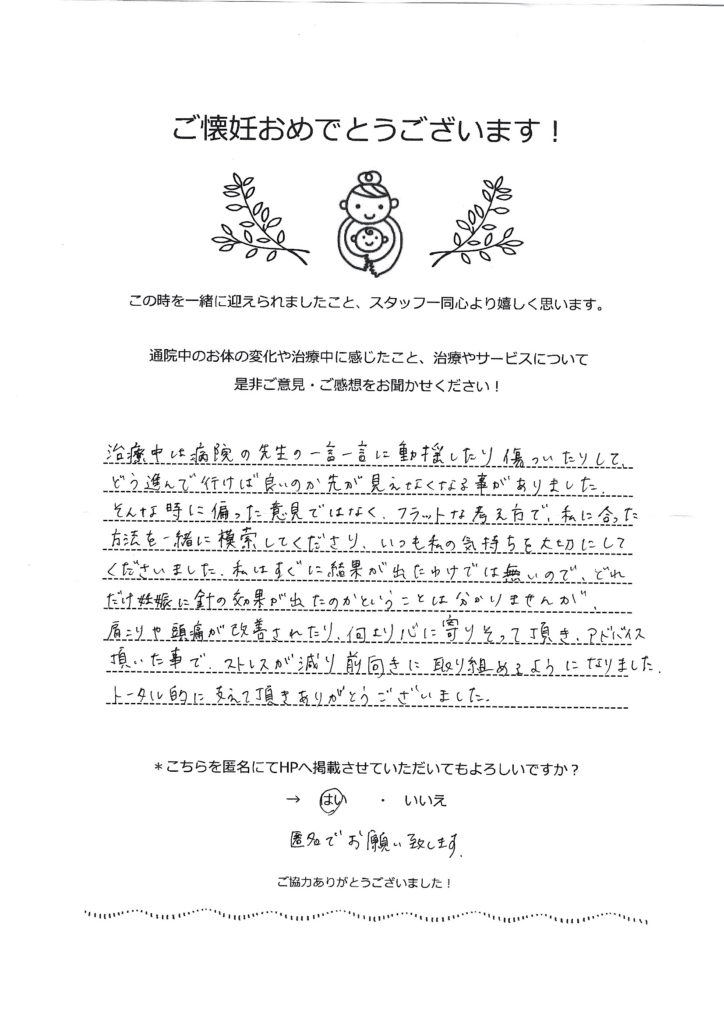 ご懐妊おめでとうございます！
この時を一緒に迎えられましたこと、スタッフ一同心より嬉しく思います。
通院中のお体の変化や治療中に感じたこと、治療やサービスについて
是非ご意見・ご感想をお聞かせください！
治療中は病院の先生の一言一言に動揺したり傷ついたりして、
どう進んで行けば良いのか先が見えなくなる事がありました。
そんな時に偏った意見ではなく、フラットな考え方で、私に合った
方法を一緒に模索してくださり、いつも私の気持ちを大切にして
くださいました。私はすぐに結果が出たわけでは無いので、どれ
だけ妊娠に針の効果が出たのかということは分かりませんが、
肩こりや頭痛が改善されたり、何より心に寄りそって頂き、アドバイス
頂いた事で、ストレスが減り前向きに取り組めるようになりました。
トータル的に支えて頂きありがとうございました。
＊こちらを匿名にてHPへ掲載させていただいてもよろしいですか？
→ はい ・ いいえ
匿名でお願い致します。
ご協力ありがとうございました！